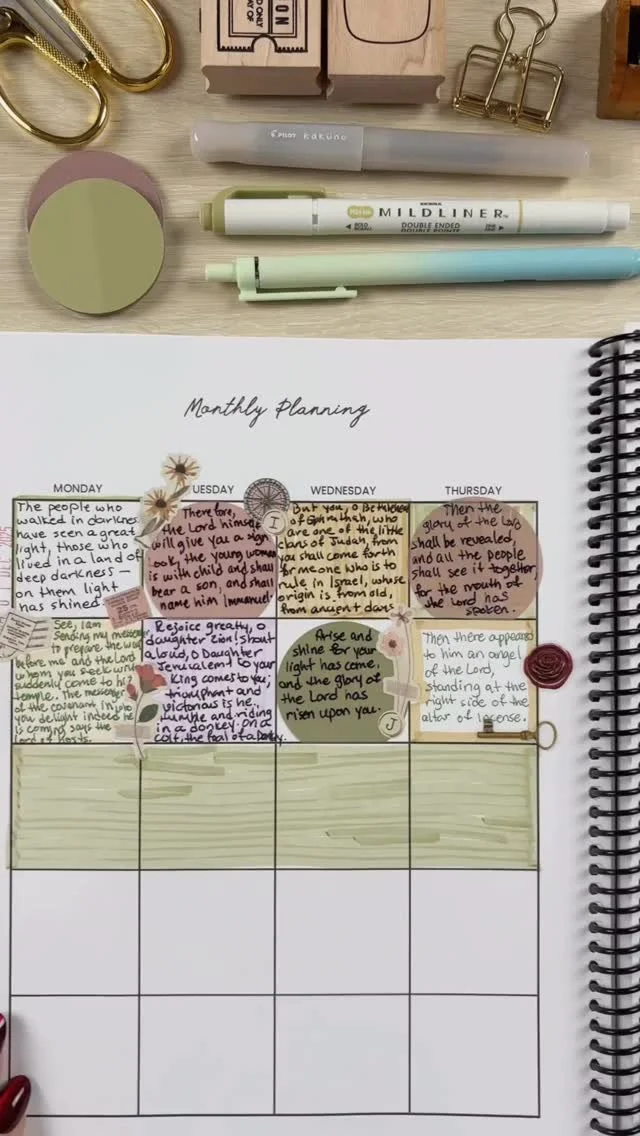 PILOT kakuno
MILDLINER
DOUBLE ENDED
Monthly Planning
MONDAY
UESDAY
WEDNESDAY
THURSDAY
The people who
walked in darknes
have seen a great
light, those who
lived in a land of
deep darkness —
on them light
has shined.
Therefore,
the Lord himself
will give you a sign
look, the young woman
is with child and shall
bear a son, and shall
name him Immanuel.
I
But you, O Bethlehem
of Ephrathah, who
are one of the little
clans of Judah, from
you shall come forth
for me one who is to
rule in Israel, whose
origin is from old,
from ancient days
Then the
glory of the Lord
shall be revealed,
and all the people
shall see it together,
for the mouth of
the Lord has
spoken.
25
See, I am
sending my
to prepare the way
before me and the Lord
whom you seek will
suddenly come to his
temple. The messenger
of the covenant in
you delight indeed he
is coming says the
Lord of hosts.
Rejoice greatly, o
daughter Zion! shout
aloud, o Daughter
Jerusalem! to your
King comes to you;
triumphant and
victorious is he,
humble and riding
in a donkey, on a
colt, the foal of a donkey.
Arise and
shine for your
light has come,
and the glory of
the Lord has
risen upon you.
J
Then there appeared
to him an angel
of the Lord,
standing at the
right side of the
altar of incense.